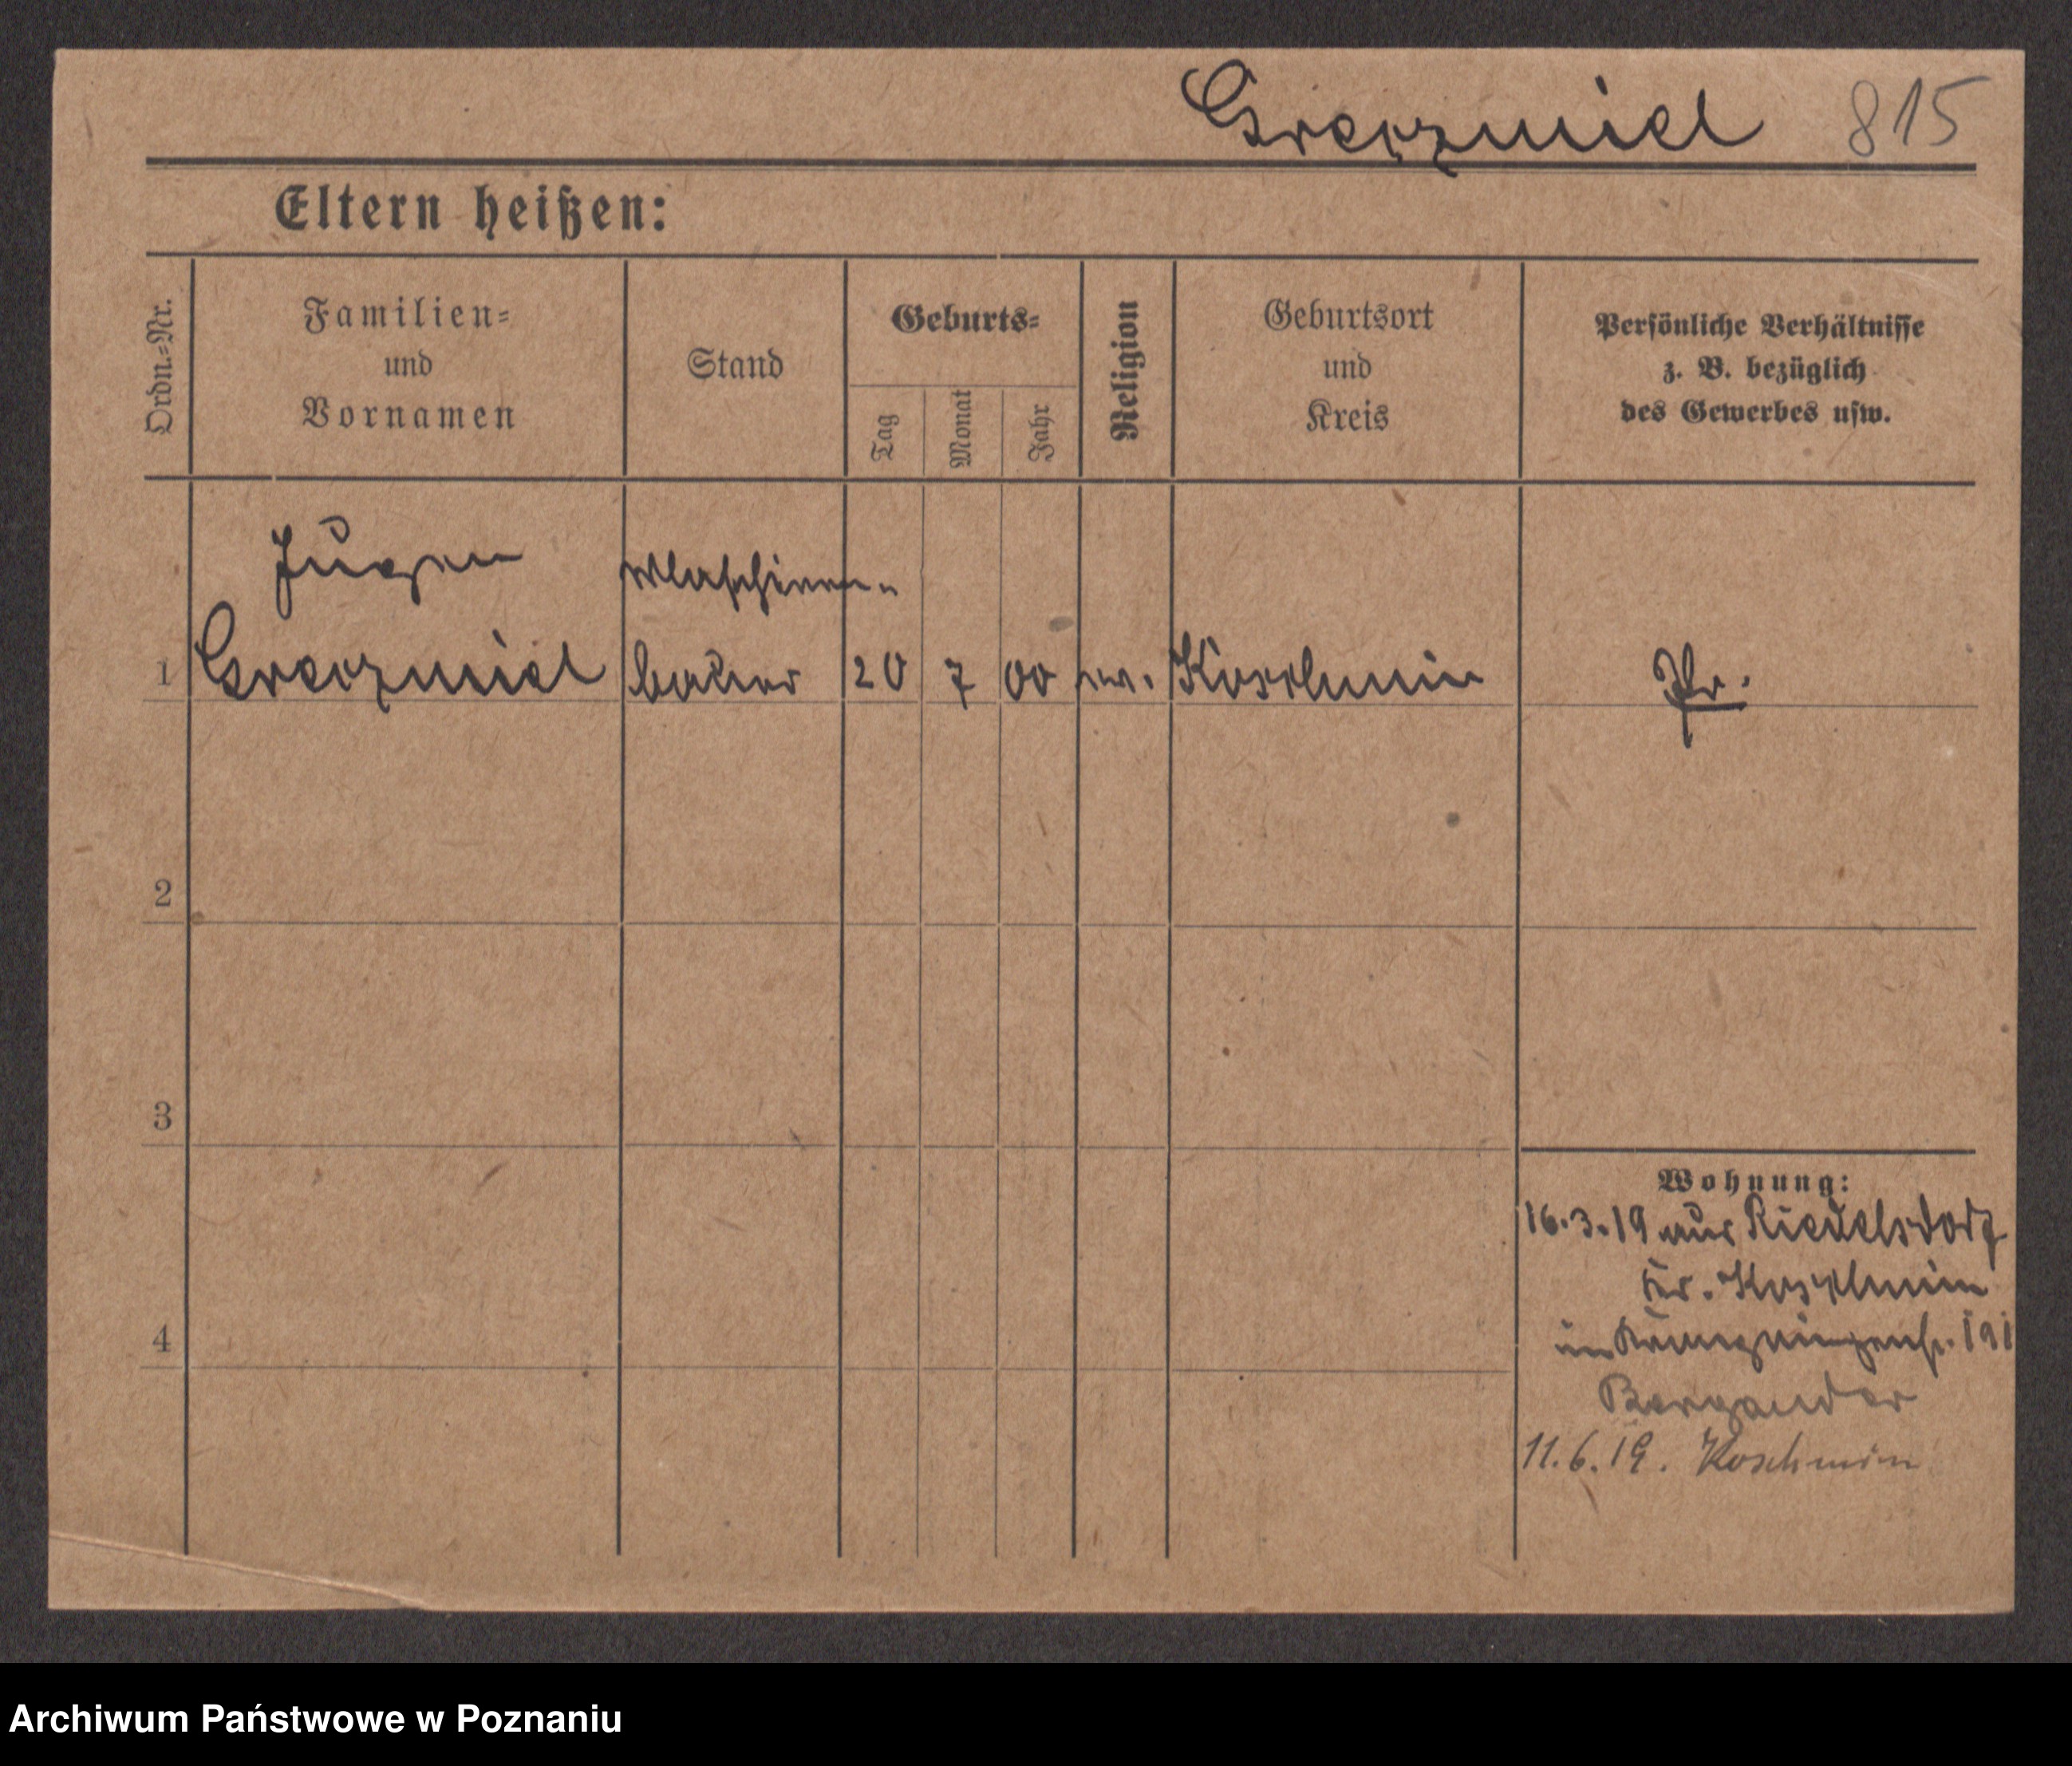 815
Eltern heißen:
Ordn.=Nr.
Familien=
und
Vornamen
Stand
Geburts=
Tag
Monat
Jahr
Religion
Geburtsort
und
Kreis
Persönliche Verhältnisse
z. B. bezüglich
des Gewerbes usw.
Maschinen-
1 bauer 20 7 00 ev. Koschmin Pr.
2
3
4
Wohnung:
16.3.19 aus Riedelsdorf
Kr. Koschmin
in 191
Bergander
11.6.19. Koschmin
Archiwum Państwowe w Poznaniu